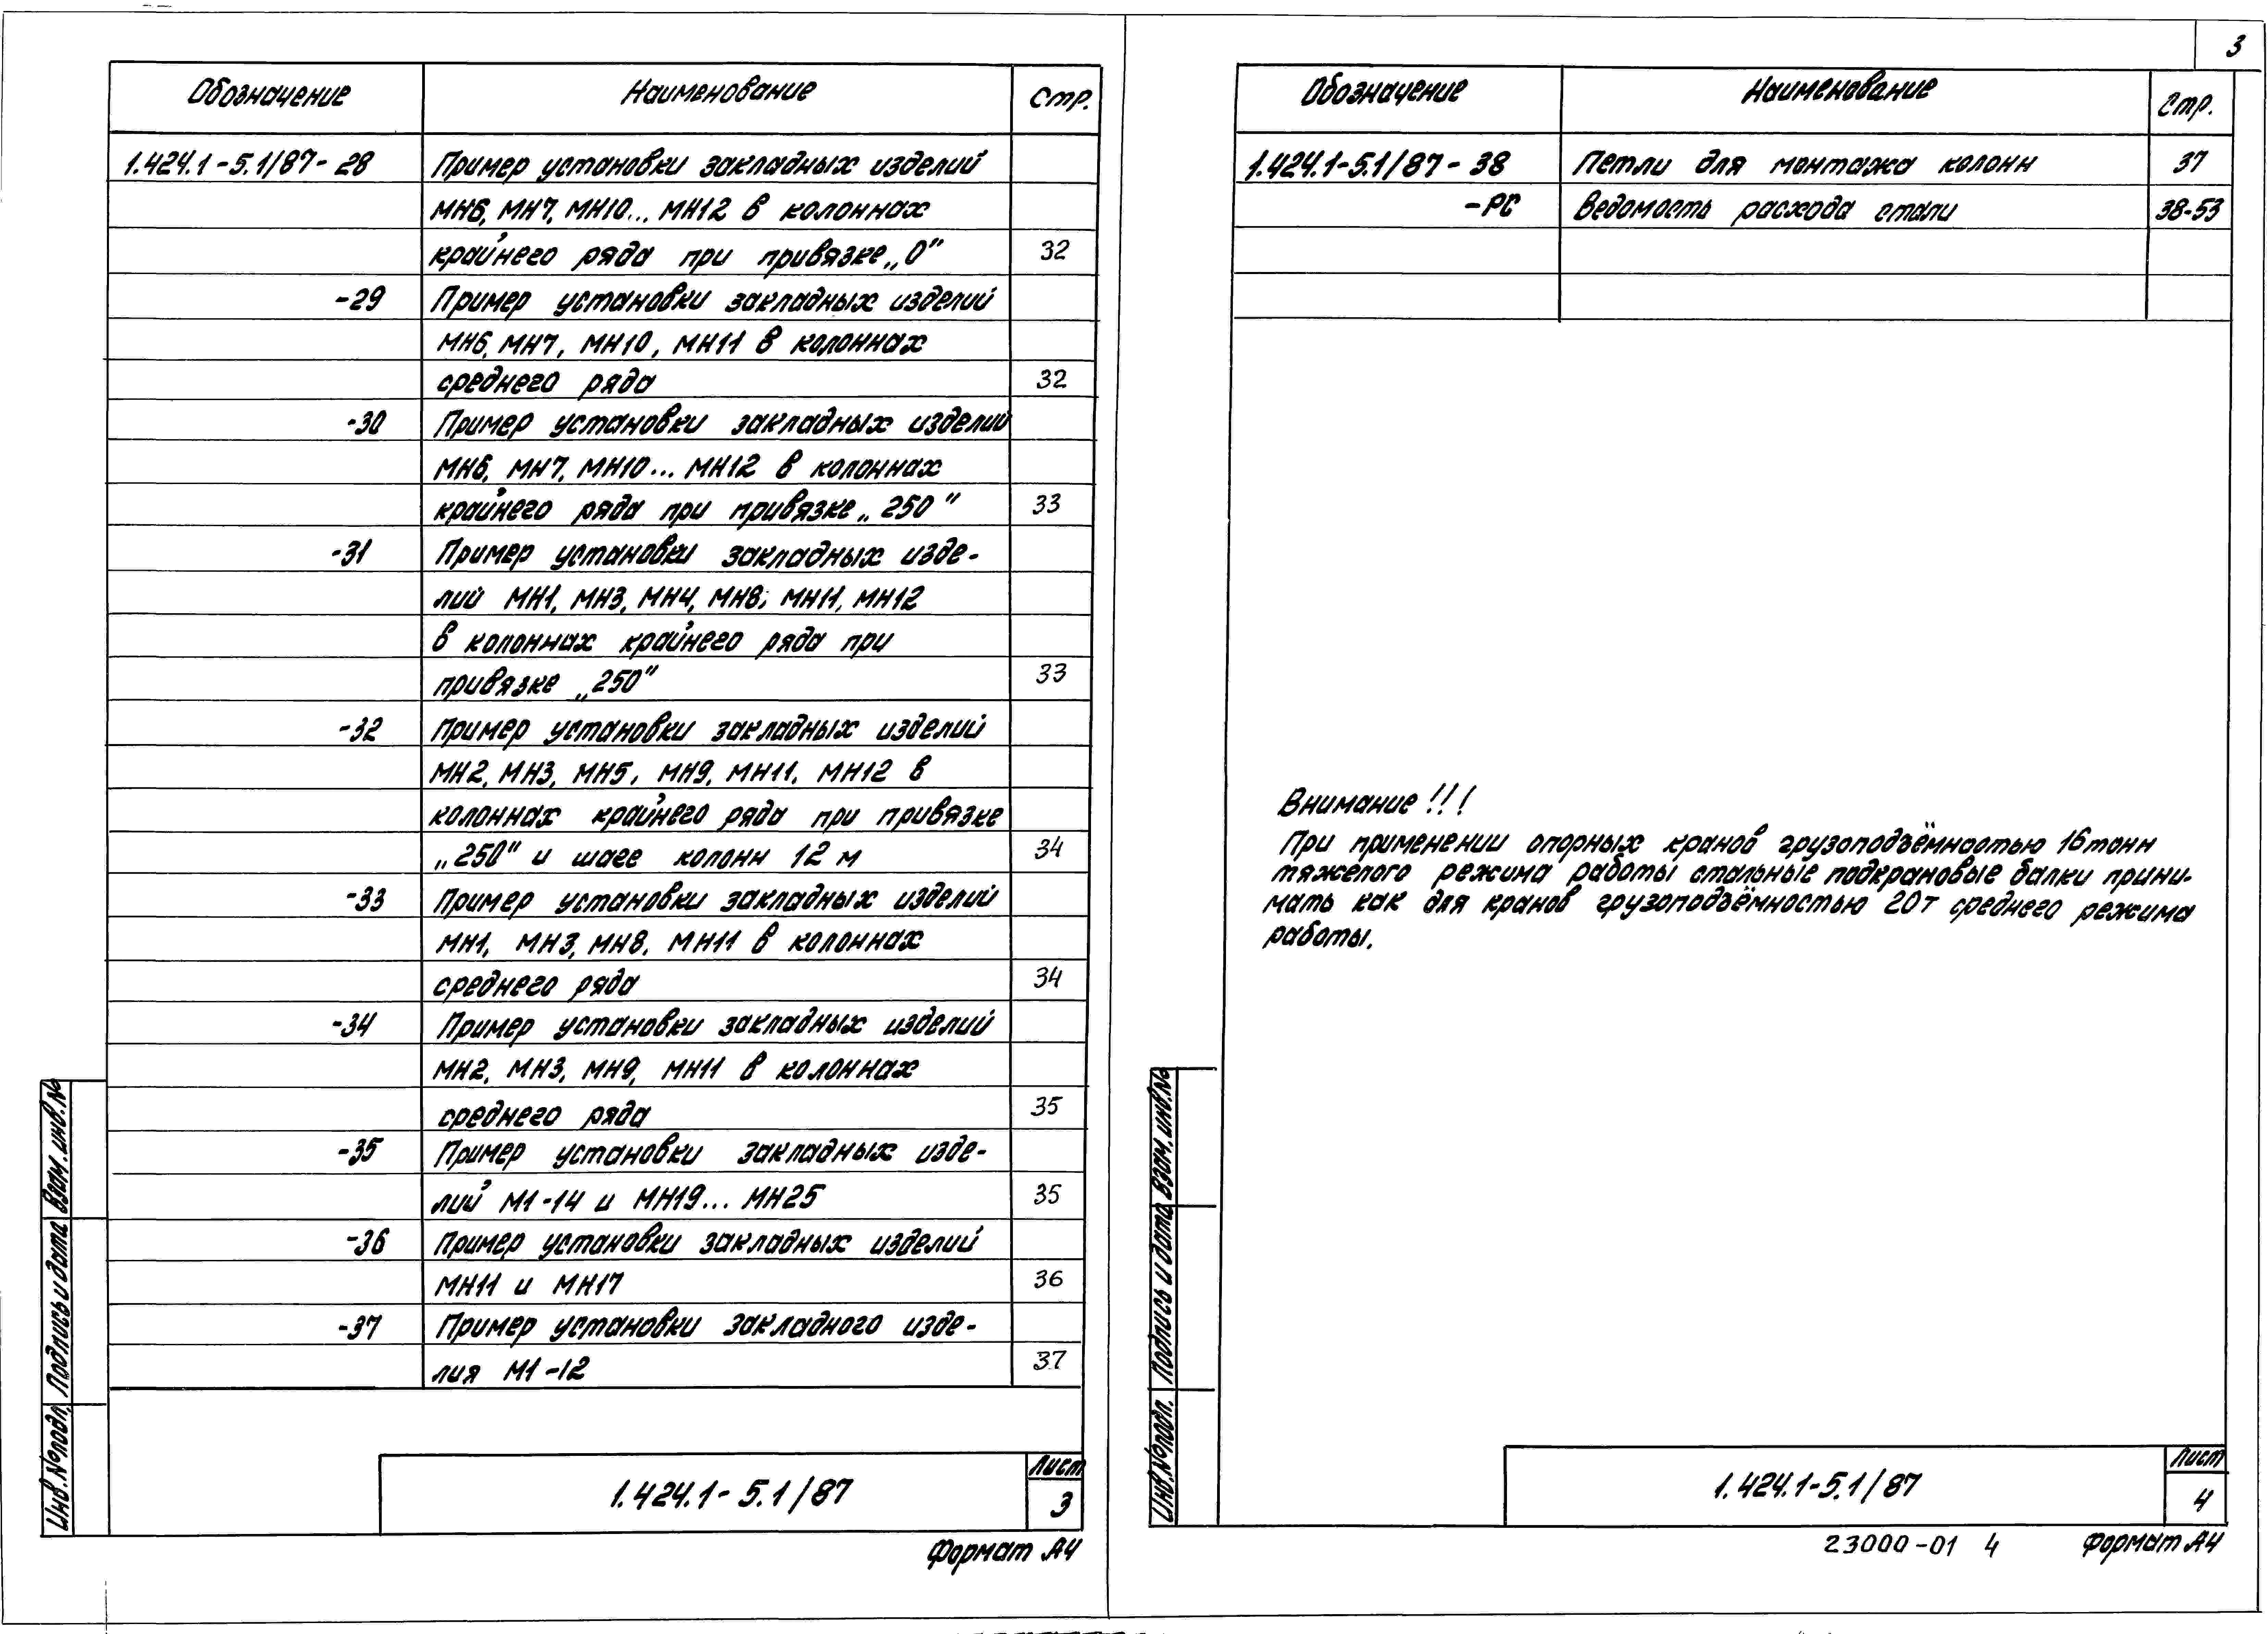 Обозначение Наименование Стр.
1.424.1-5.1/87-28 Пример установки закладных изделий
МН6, МН7, МН10... МН12 в колоннах
крайнего ряда при привязке „0" 32
-29 Пример установки закладных изделий
МН6, МН7, МН10, МН11 в колоннах
среднего ряда 32
-30 Пример установки закладных изделий
МН6, МН7, МН10... МН12 в колоннах
крайнего ряда при привязке „250" 33
-31 Пример установки закладных изде-
лий МН1, МН3, МН4, МН8; МН11, МН12
в колоннах крайнего ряда при
привязке „250" 33
-32 Пример установки закладных изделий
МН2, МН3, МН5, МН9, МН11, МН12 в
колоннах крайнего ряда при привязке
„250" и шаге колонн 12 м 34
-33 Пример установки закладных изделий
МН1, МН3, МН8, МН11 в колоннах
среднего ряда 34
-34 Пример установки закладных изделий
МН2, МН3, МН9, МН11 в колоннах
среднего ряда 35
-35 Пример установки закладных изде-
лий М1-14 и МН19... МН25 35
-36 Пример установки закладных изделий
МН11 и МН17 36
-37 Пример установки закладного изде-
лия М1-12 37
Инв.№подл. Подпись и дата Взам.инв.№
1.424.1-5.1/87
Лист
3
Формат А4
3
Обозначение Наименование Стр.
1.424.1-5.1/87-38 Петли для монтажа колонн 37
-РС Ведомость расхода стали 38-53
Внимание!!!
При применении опорных кранов грузоподъёмностью 16 тонн
тяжелого режима работы стальные подкрановые балки прини-
мать как для кранов грузоподъёмностью 20т среднего режима
работы.
Инв.№подл. Подпись и дата Взам.инв.№
1.424.1-5.1/87
Лист
4
23000-01 4 Формат А4